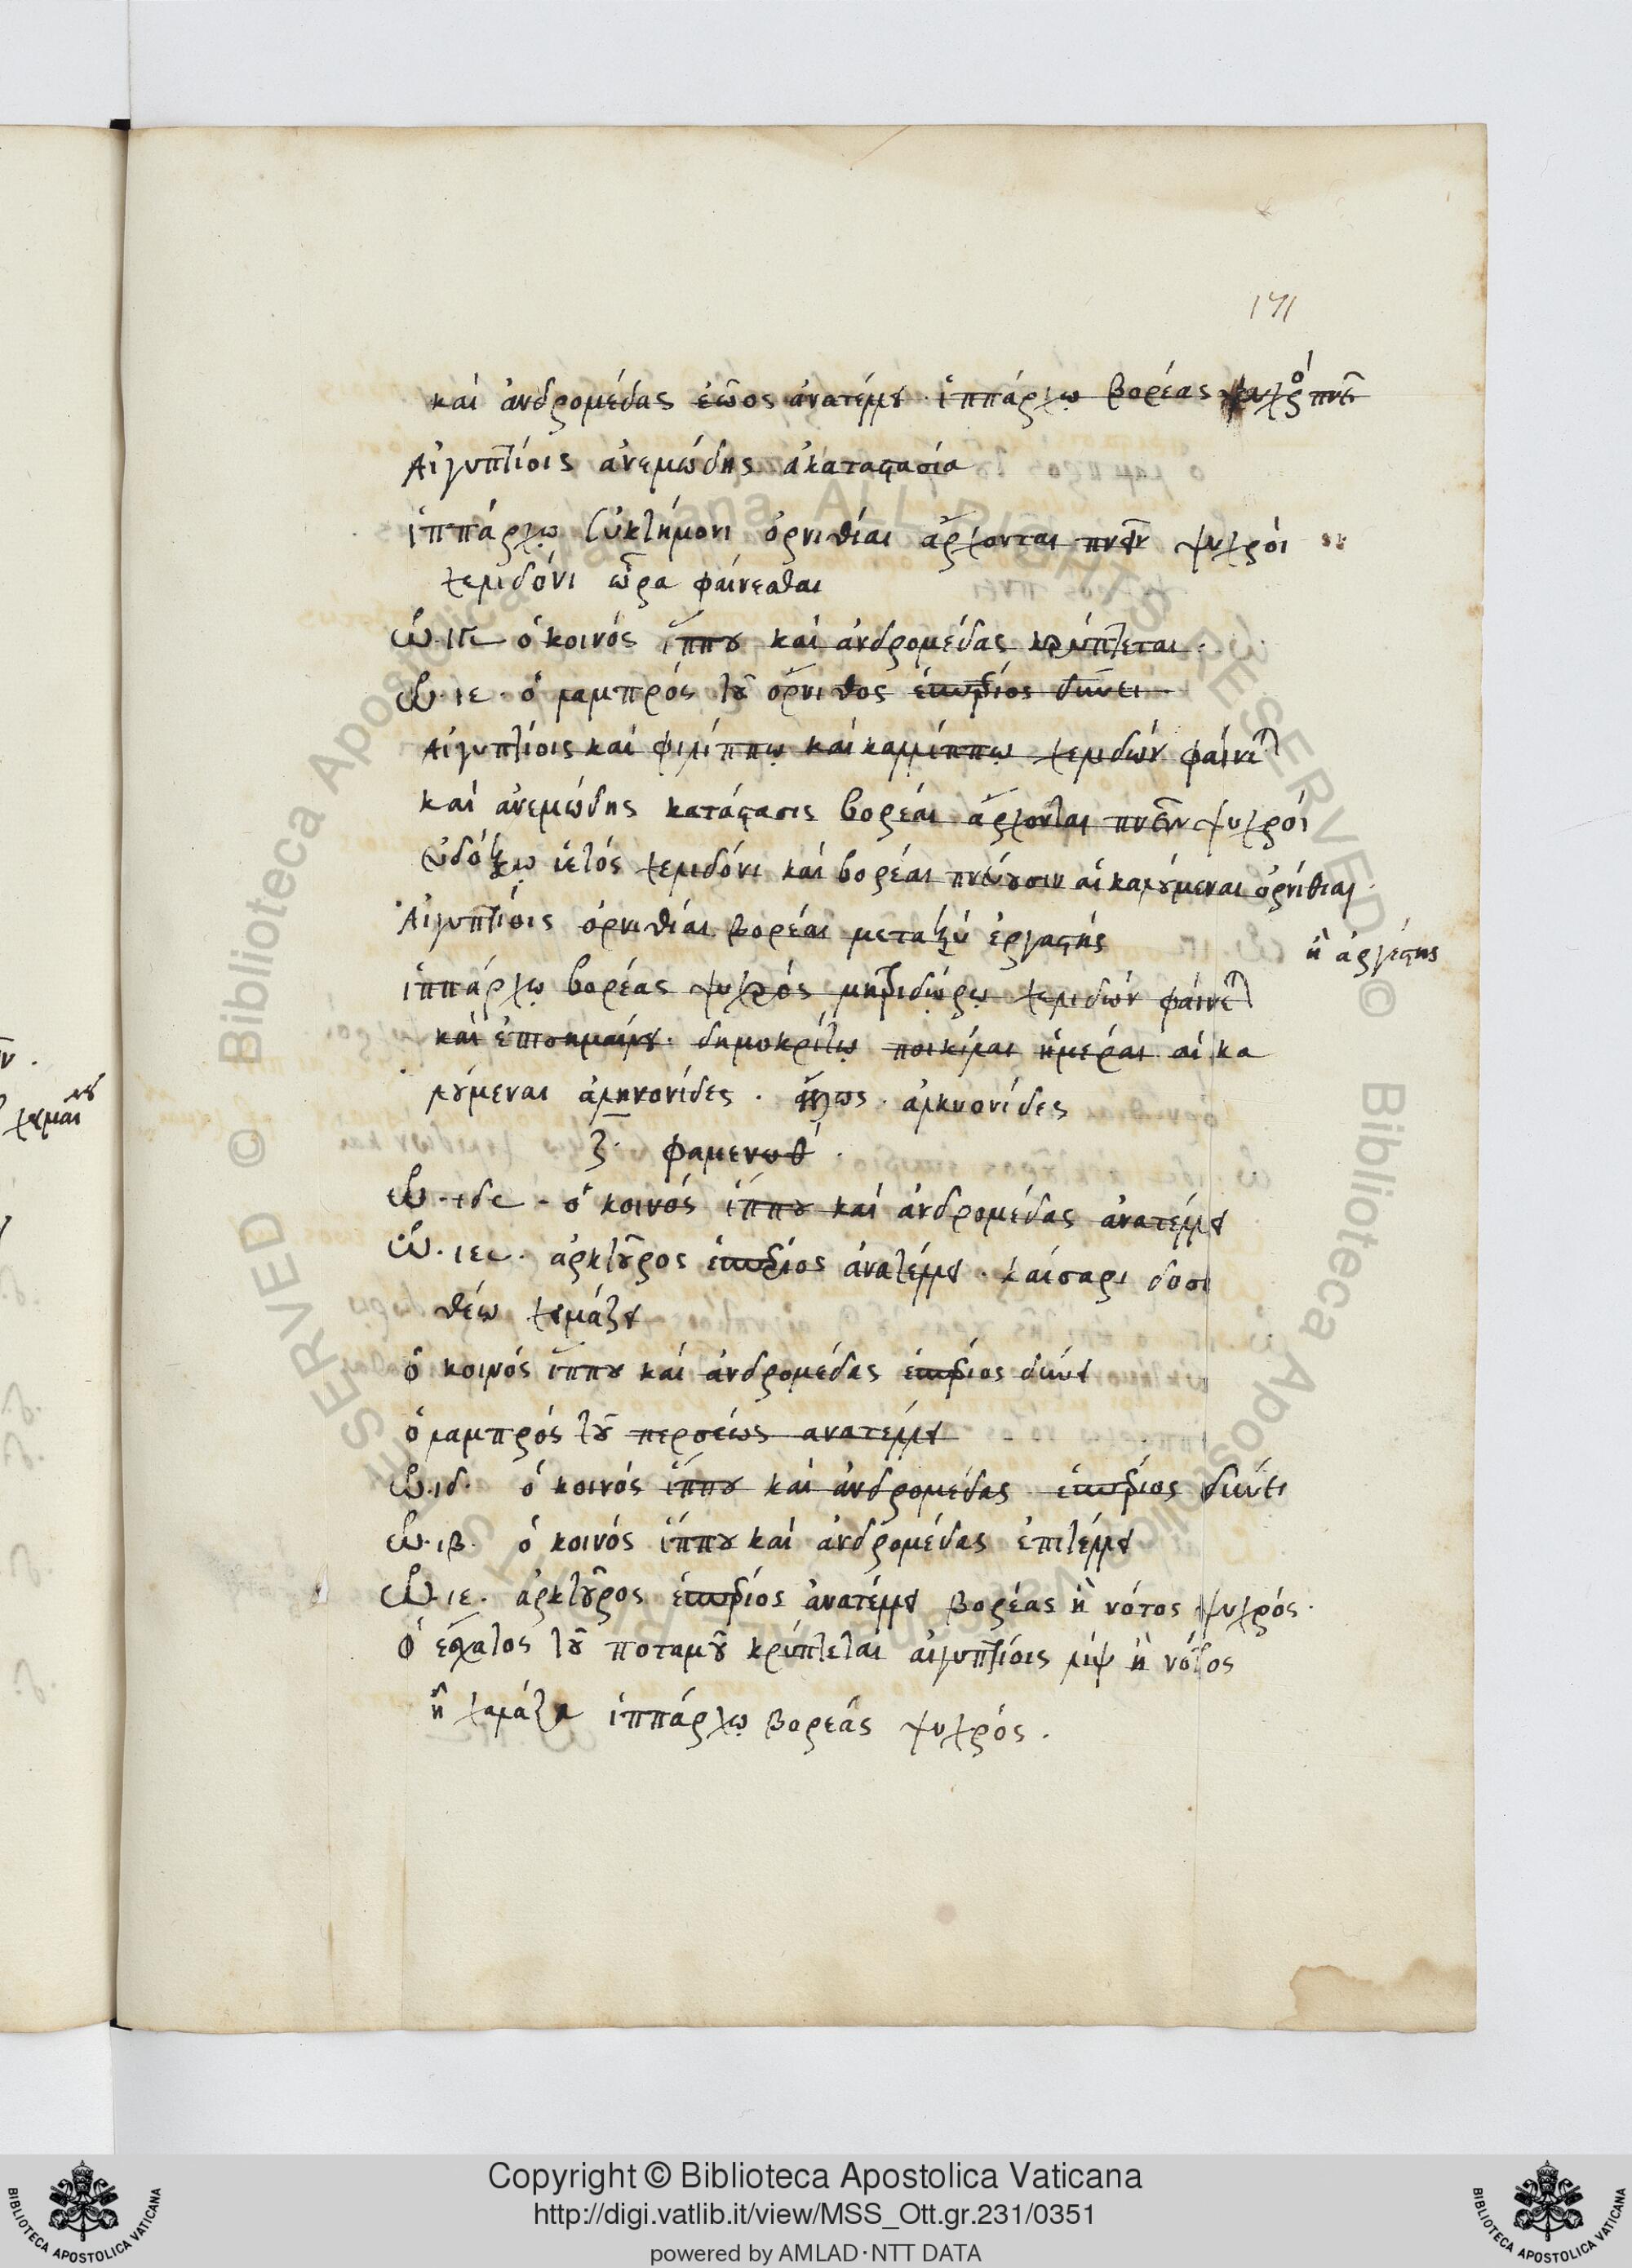 171
καὶ ἀνδρομέδας ἑῶος ἀνατέλλει · ἱππάρχῳ βορέας ψυχρὸς πνεῖ
Αἰγυπτίοις ἀνεμώδης ἀκαταστασία
ἱππάρχῳ εὐκτήμονι ὀρνιθίαι ἄρχονται πνεῖν ψυχροὶ
χελιδόνι ὥρα φαίνεσθαι
ὡ. ιγς ὁ κοινὸς ἵππου καὶ ἀνδρομέδας κρύπτεται.
ὡ. ιε · ὁ λαμπρὸς τοῦ ὄρνιθος ἑσπέριος δύνει
Αἰγυπτίοις καὶ φιλίππῳ καὶ καλλίππῳ χελιδὼν φαίνεται
καὶ ἀνεμώδης κατάστασις βορέαι ἄρχονται πνεῖν ψυχροὶ
εὐδόξῳ ὑετός χελιδόνι καὶ βορέαι πνέουσιν αἱ καλούμεναι ὀρνιθίαι
Αἰγυπτίοις ὀρνιθίαι βορέαι μεταξὺ ἐργαστὴς
ἢ ἀργέστης
ἱππάρχῳ βορέας ψυχρὸς μητροδώρῳ χελιδὼν φαίνεται
καὶ ἐπισημαίνει · δημοκρίτῳ ποικίλαι ἡμέραι αἱ κα
λούμεναι ἀληκονίδες · ἴσως · ἀλκυονίδες
ζ · φαμενώθ ·
ὡ. ιδς - ὁ κοινὸς ἵππου καὶ ἀνδρομέδας ἀνατέλλει
ὡ. ιες · ἀρκτοῦρος ἑσπέριος ἀνατέλλει · καίσαρι δοσι
θέῳ χειμάζει
ὁ κοινὸς ἵππου καὶ ἀνδρομέδας ἑσπέριος δύνει
ὁ λαμπρὸς τοῦ περσέως ἀνατέλλει
ὡ. ιδ. ὁ κοινὸς ἵππου καὶ ἀνδρομέδας ἑσπέριος δύνει
ὡ. ιβ. ὁ κοινὸς ἵππου καὶ ἀνδρομέδας ἐπιτέλλει
ὡ. ιε. ἀρκτοῦρος ἑσπέριος ἀνατέλλει βορέας ἢ νότος ψυχρός.
ὁ ἔσχατος τοῦ ποταμοῦ κρύπτεται αἰγυπτίοις λὶψ ἢ νότος
ἢ χάλαζα ἱππάρχῳ βορέας ψυχρός.
Copyright © Biblioteca Apostolica Vaticana
http://digi.vatlib.it/view/MSS_Ott.gr.231/0351
powered by AMLAD·NTT DATA